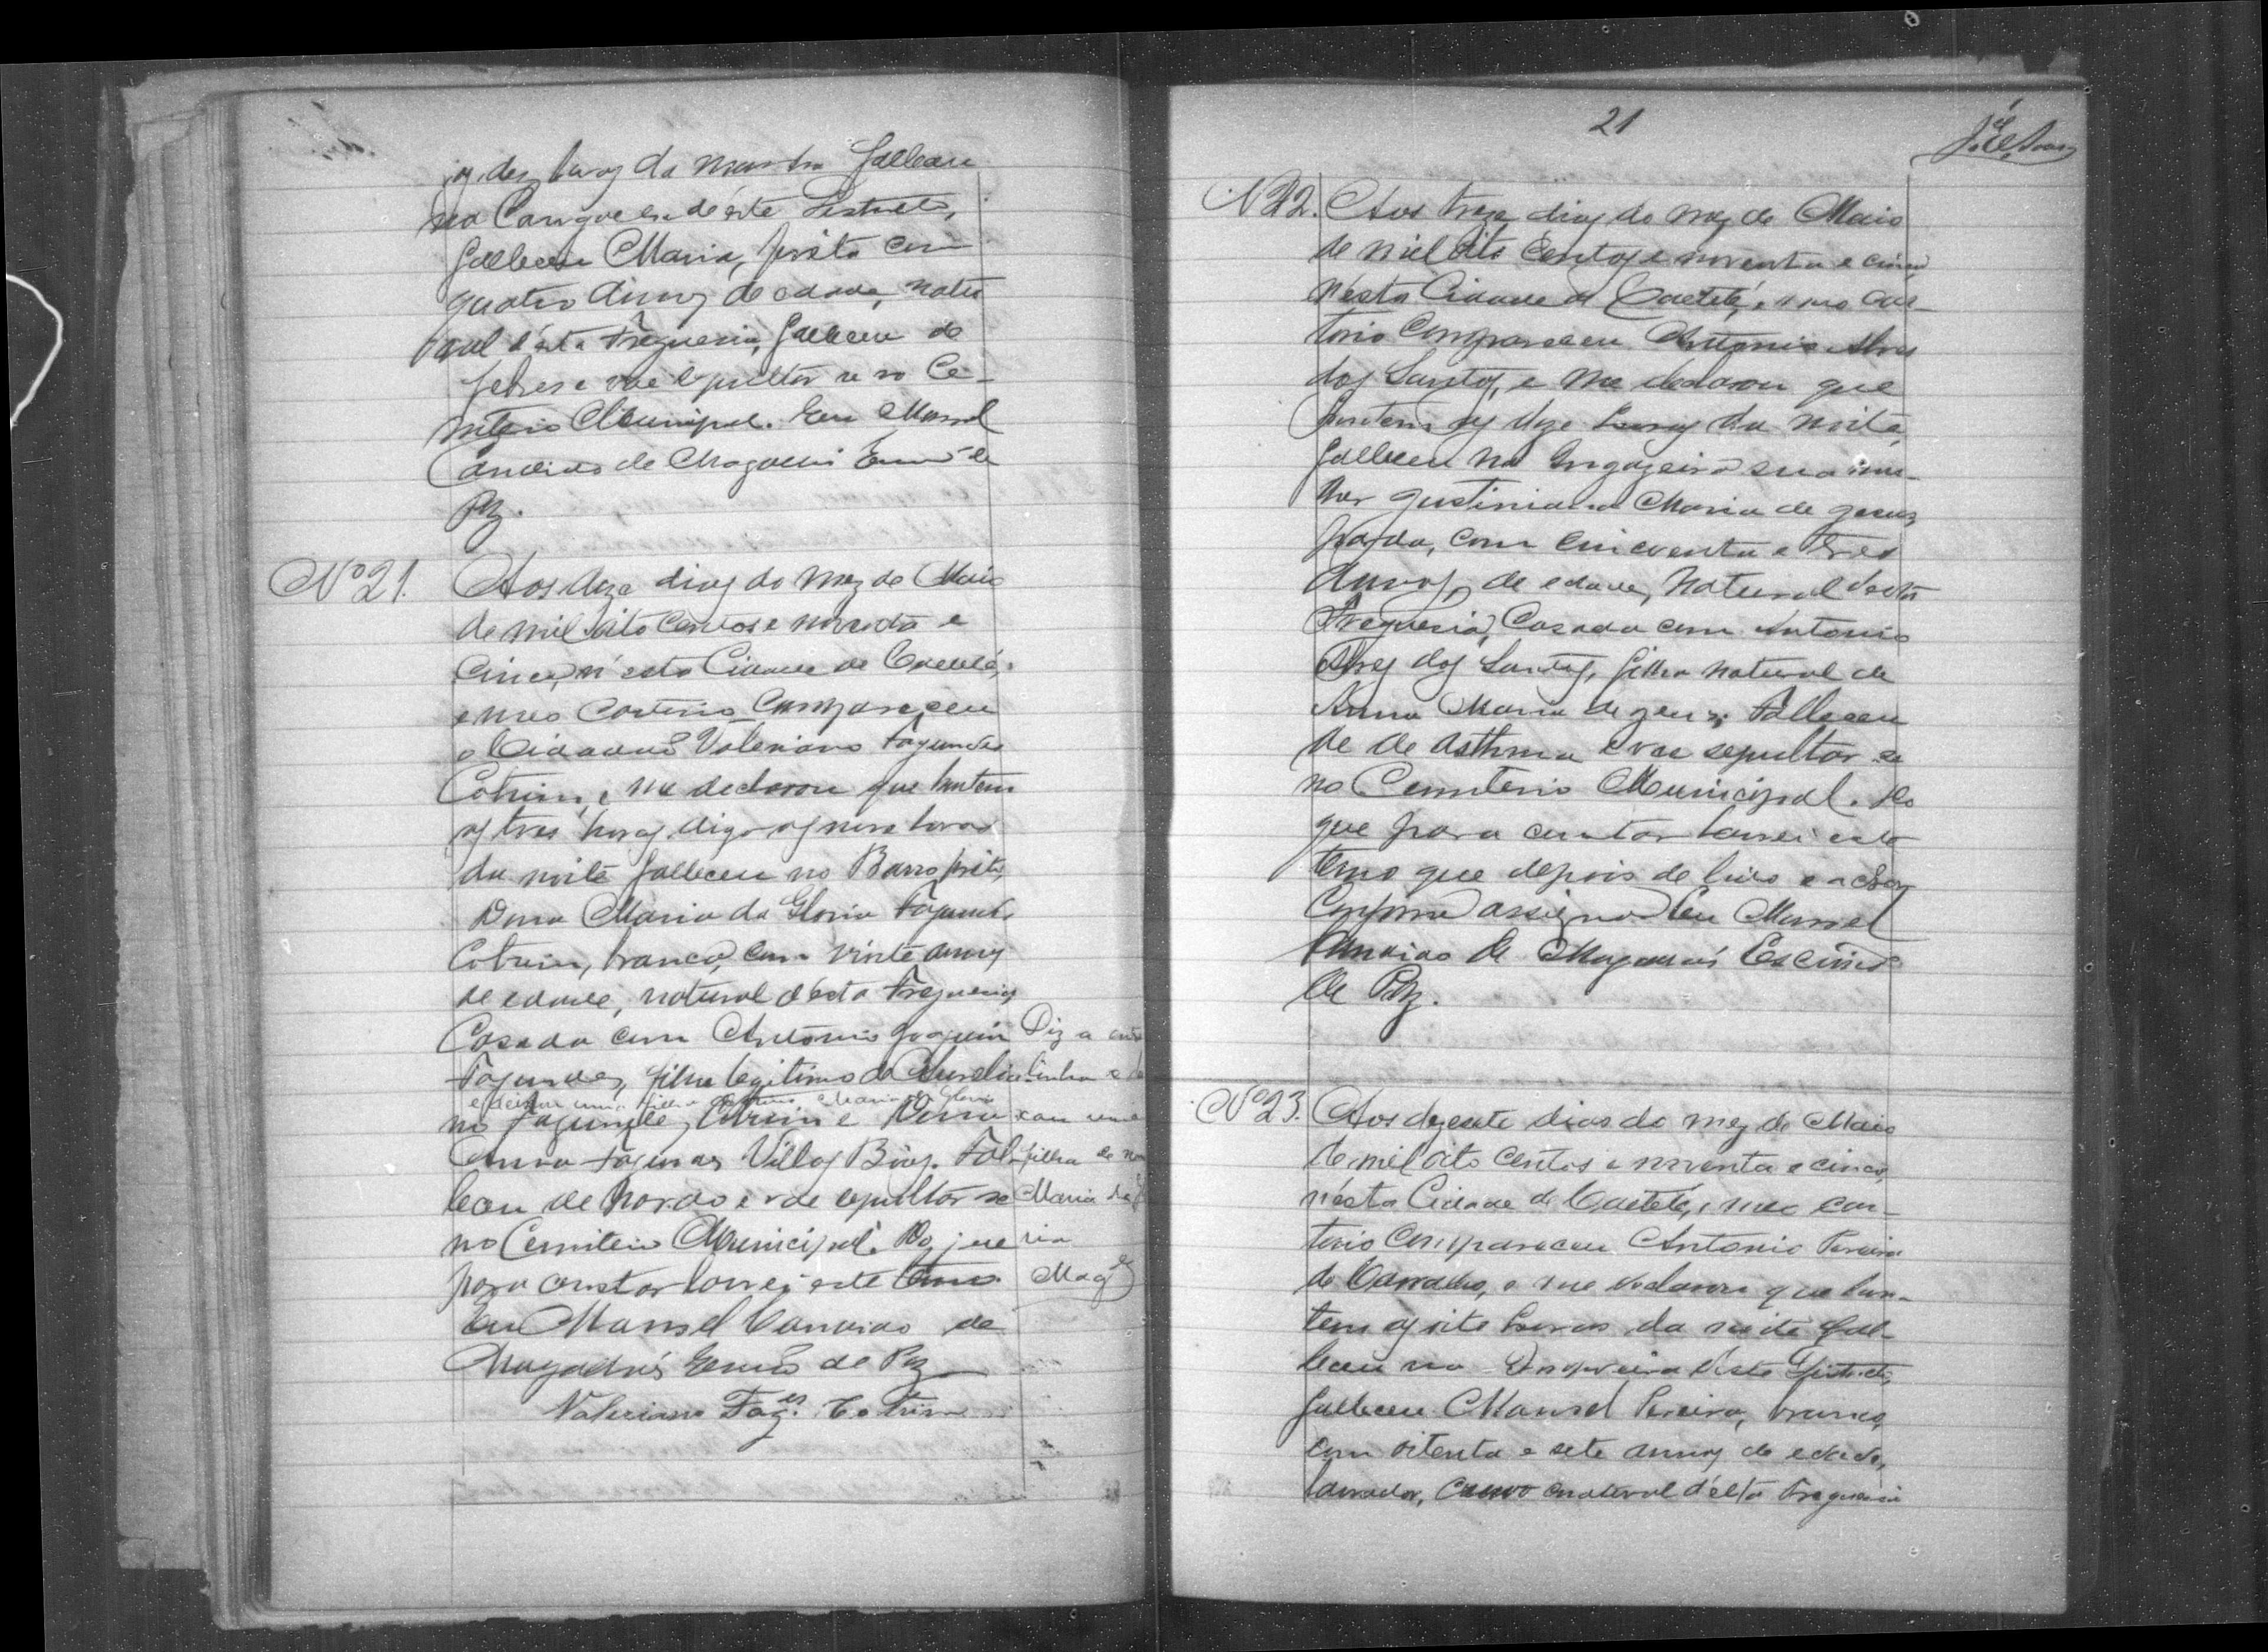 as dez horas da manhã falleceu
no deste Districto,
falleceu Maria, preta com
quatro annos de edade, natu
ral d'esta Freguesia, falleceu de
febres e vae sepultar se no Ce-
miterio Municipal. Eu Manoel
Candido de Magalhães Escrivão de
Paz.
Nº 21. Aos doze dias do mez de Maio
de mil oito centos e noventa e
cinco, n'esta Cidade de Caeteté,
e meo Cartorio Compareceu
o Cidadão Valeriano Fagundes
Cotrim, e me declarou que hontem
as tres horas digo as nove horas
da noite falleceu no Barro preto,
Dona Maria da Gloria Fagundes
Cotrim, branca, com vinte annos
de edade, natural d'esta Freguesia,
Casada com Antonio Joaquim
Fagundes, filha legitima de Aurelia-
e deixou uma filha Maria da Gloria
no Fagundes Cotrim e Dona
Anna Fagundes Villas Bôas. Fal-
leceu de e vae sepultar se
no Cemiterio Municipal. Do que
para constar lavrei este termo.
Eu Manoel Candido de
Magalhães Escrivão de Paz
Valeriano Fag.es Cotrim
Diz a entre
linha e dei
xou uma
filha de nome
Maria da Glo
ria
Mag.es
21
Nº 22. Aos treze dias do mez de Maio
de mil oito centos e noventa e cinco
n'esta Cidade de Caeteté, e meo Car-
torio Compareceu Antonio Alves
dos Santos, e me declarou que
hontem as doze horas da noite,
falleceu na Ingazeira sua mu-
lher Justiniana Maria de Jesus,
parda, com cincoenta e tres
annos, de edade, natural desta
Freguesia, Casada com Antonio
Alves dos Santos, filha natural de
Anna Maria de Jesus, Falleceu
de de asthma e vae sepultar se
no Cemiterio Municipal. Do
que para constar lavrei este
termo que depois de lido e achar
Conforme assigna Eu Manoel
Candido de Magalhães Escrivão
de Paz.
Nº 23. Aos dezesete dias do mez de Maio
de mil oito centos e noventa e cinco,
n'esta Cidade de Caeteté, e meo car-
torio Compareceu Antonio Pereira
de, e me declarou que hon-
tem as oito horas da noite fal-
leceu na deste Districto,
falleceu Manoel Pereira, branco,
com oitenta e sete annos de edade,
lavrador, natural d'esta Freguesia